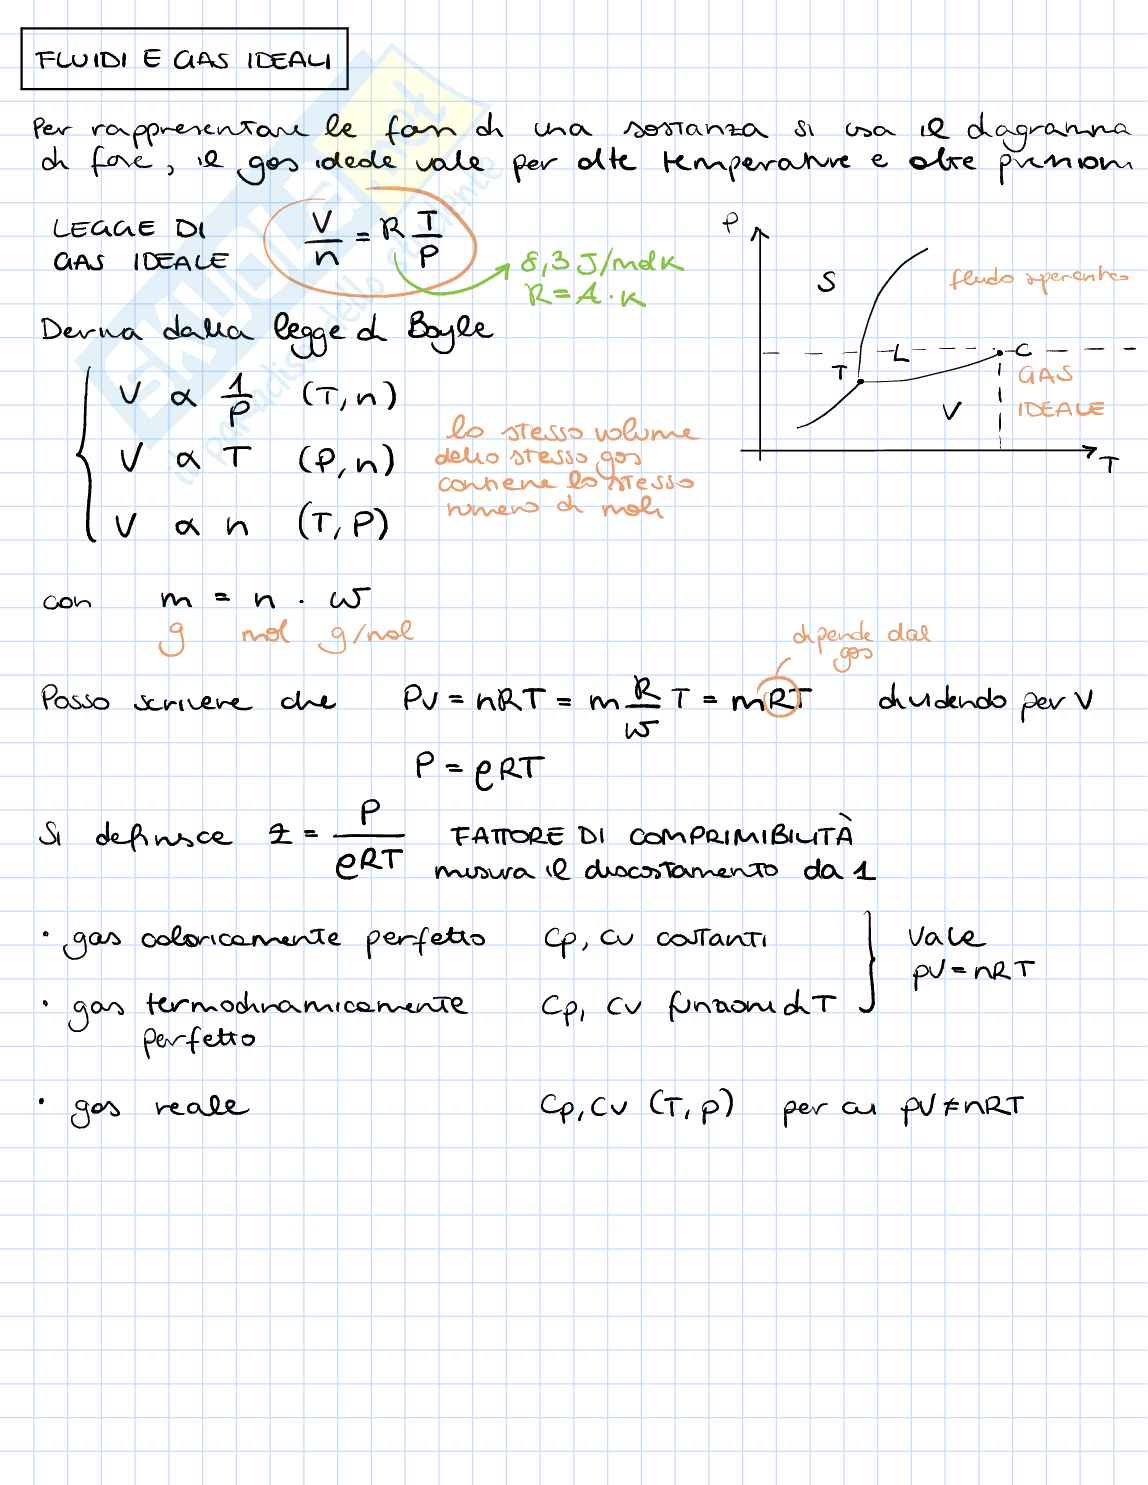 FLUIDI E GAS IDEALI
Per rappresentare le fasi di una sostanza si usa il diagramma
di fase, il gas ideale vale per alte temperature e altre pressioni
LEGGE DI
GAS IDEALE
V/n = R T/P
8,3 J/molK
R = A · K
Deriva dalla legge di Boyle
V ∝ 1/P (T, n)
V ∝ T (P, n)
V ∝ n (T, P)
lo stesso volume
dello stesso gas
contiene lo stesso
numero di moli
P
S
fluido operante
L
C
T
GAS
IDEALE
V
T
con m = n · w
g mol g/mol
dipende dal
gas
Posso scrivere che PV = nRT = m R/w T = mRT dividendo per V
P = ρRT
Si definisce z = P/ρRT FATTORE DI COMPRIMIBILITÀ
misura il discostamento da 1
· gas caloricamente perfetto Cp, Cv costanti
· gas termodinamicamente
perfetto
Cp, Cv funzioni di T
Vale
pV = nRT
· gas reale Cp, Cv (T, p) per cui pV ≠ nRT
SKUOLA.net